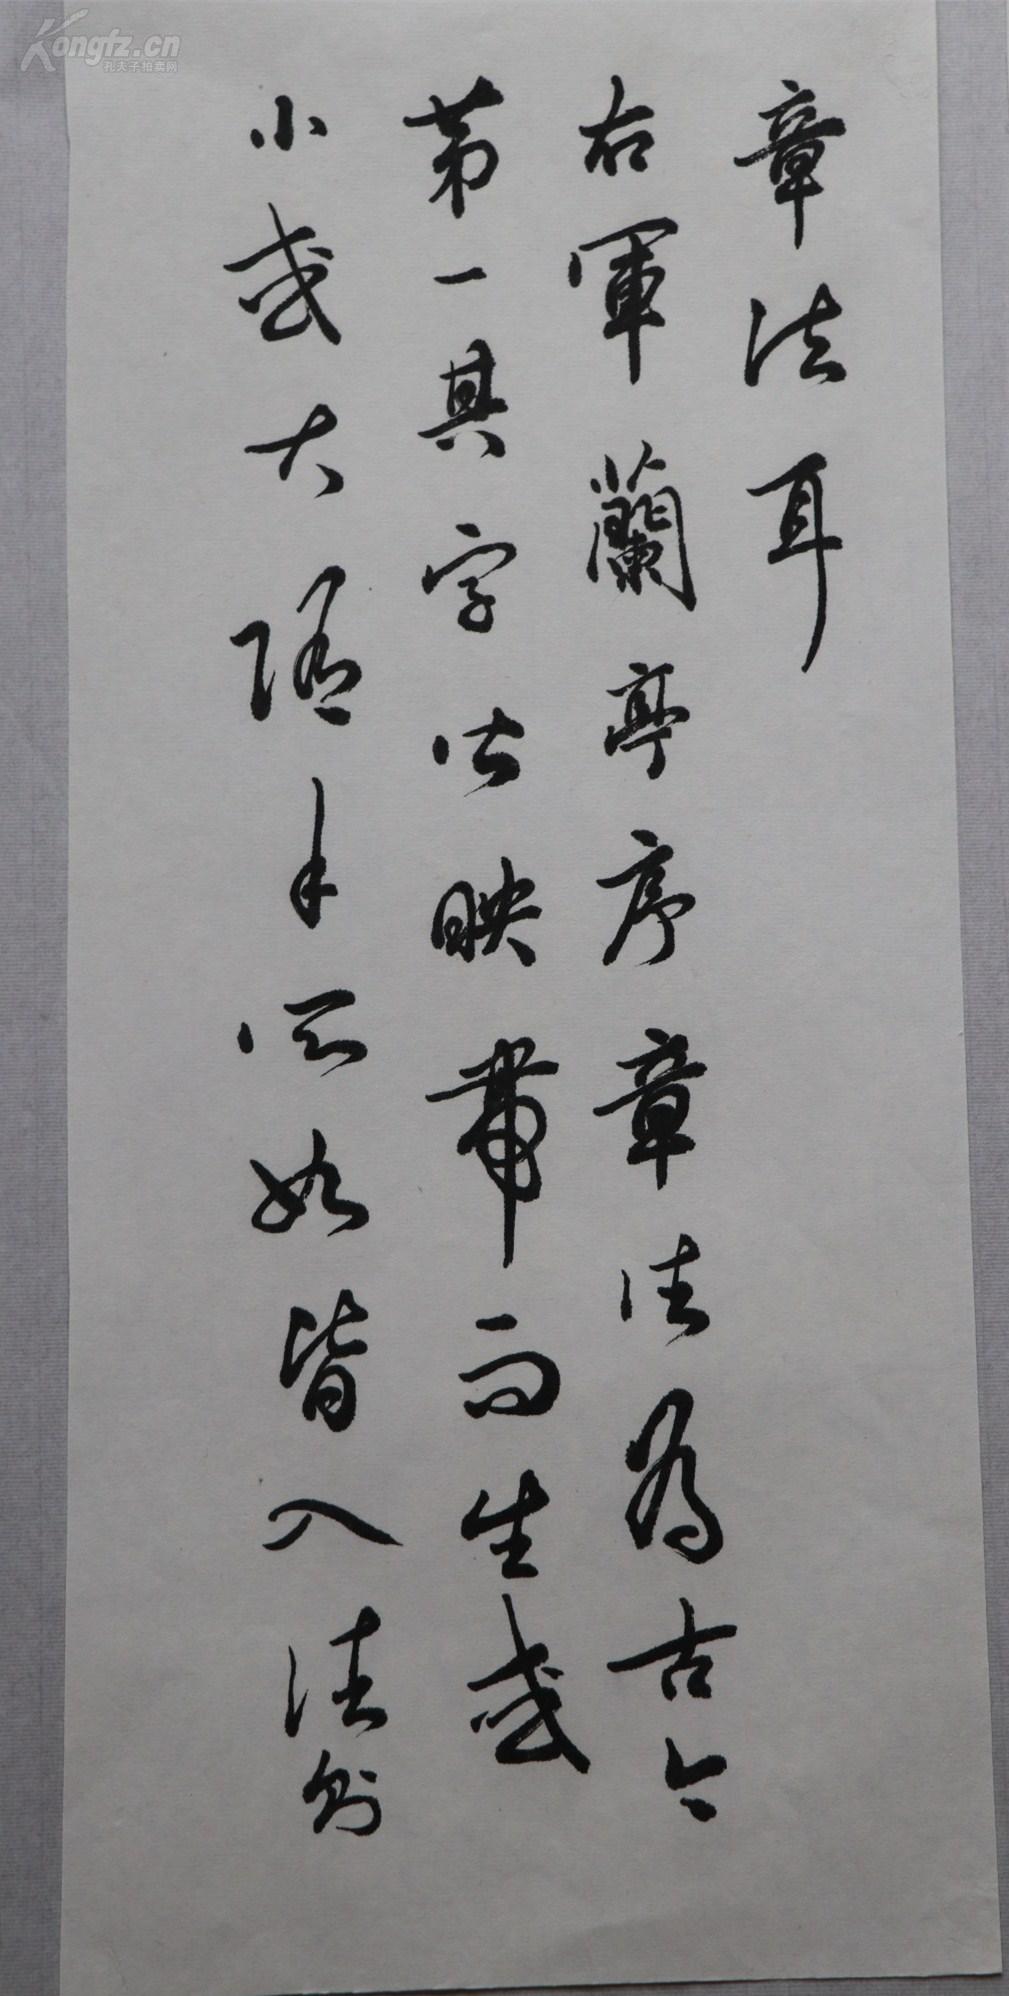 章法耳
右軍蘭亭序章法為古今
第一其字皆映帶而生或
小或大隨手所如皆入法則
Kongfz.cn
孔夫子拍卖网